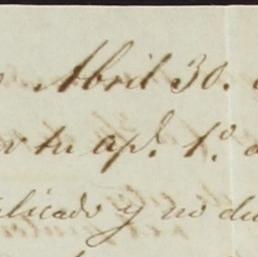 Abril 30.
tu ap.ˡ 1.º
licado y no du